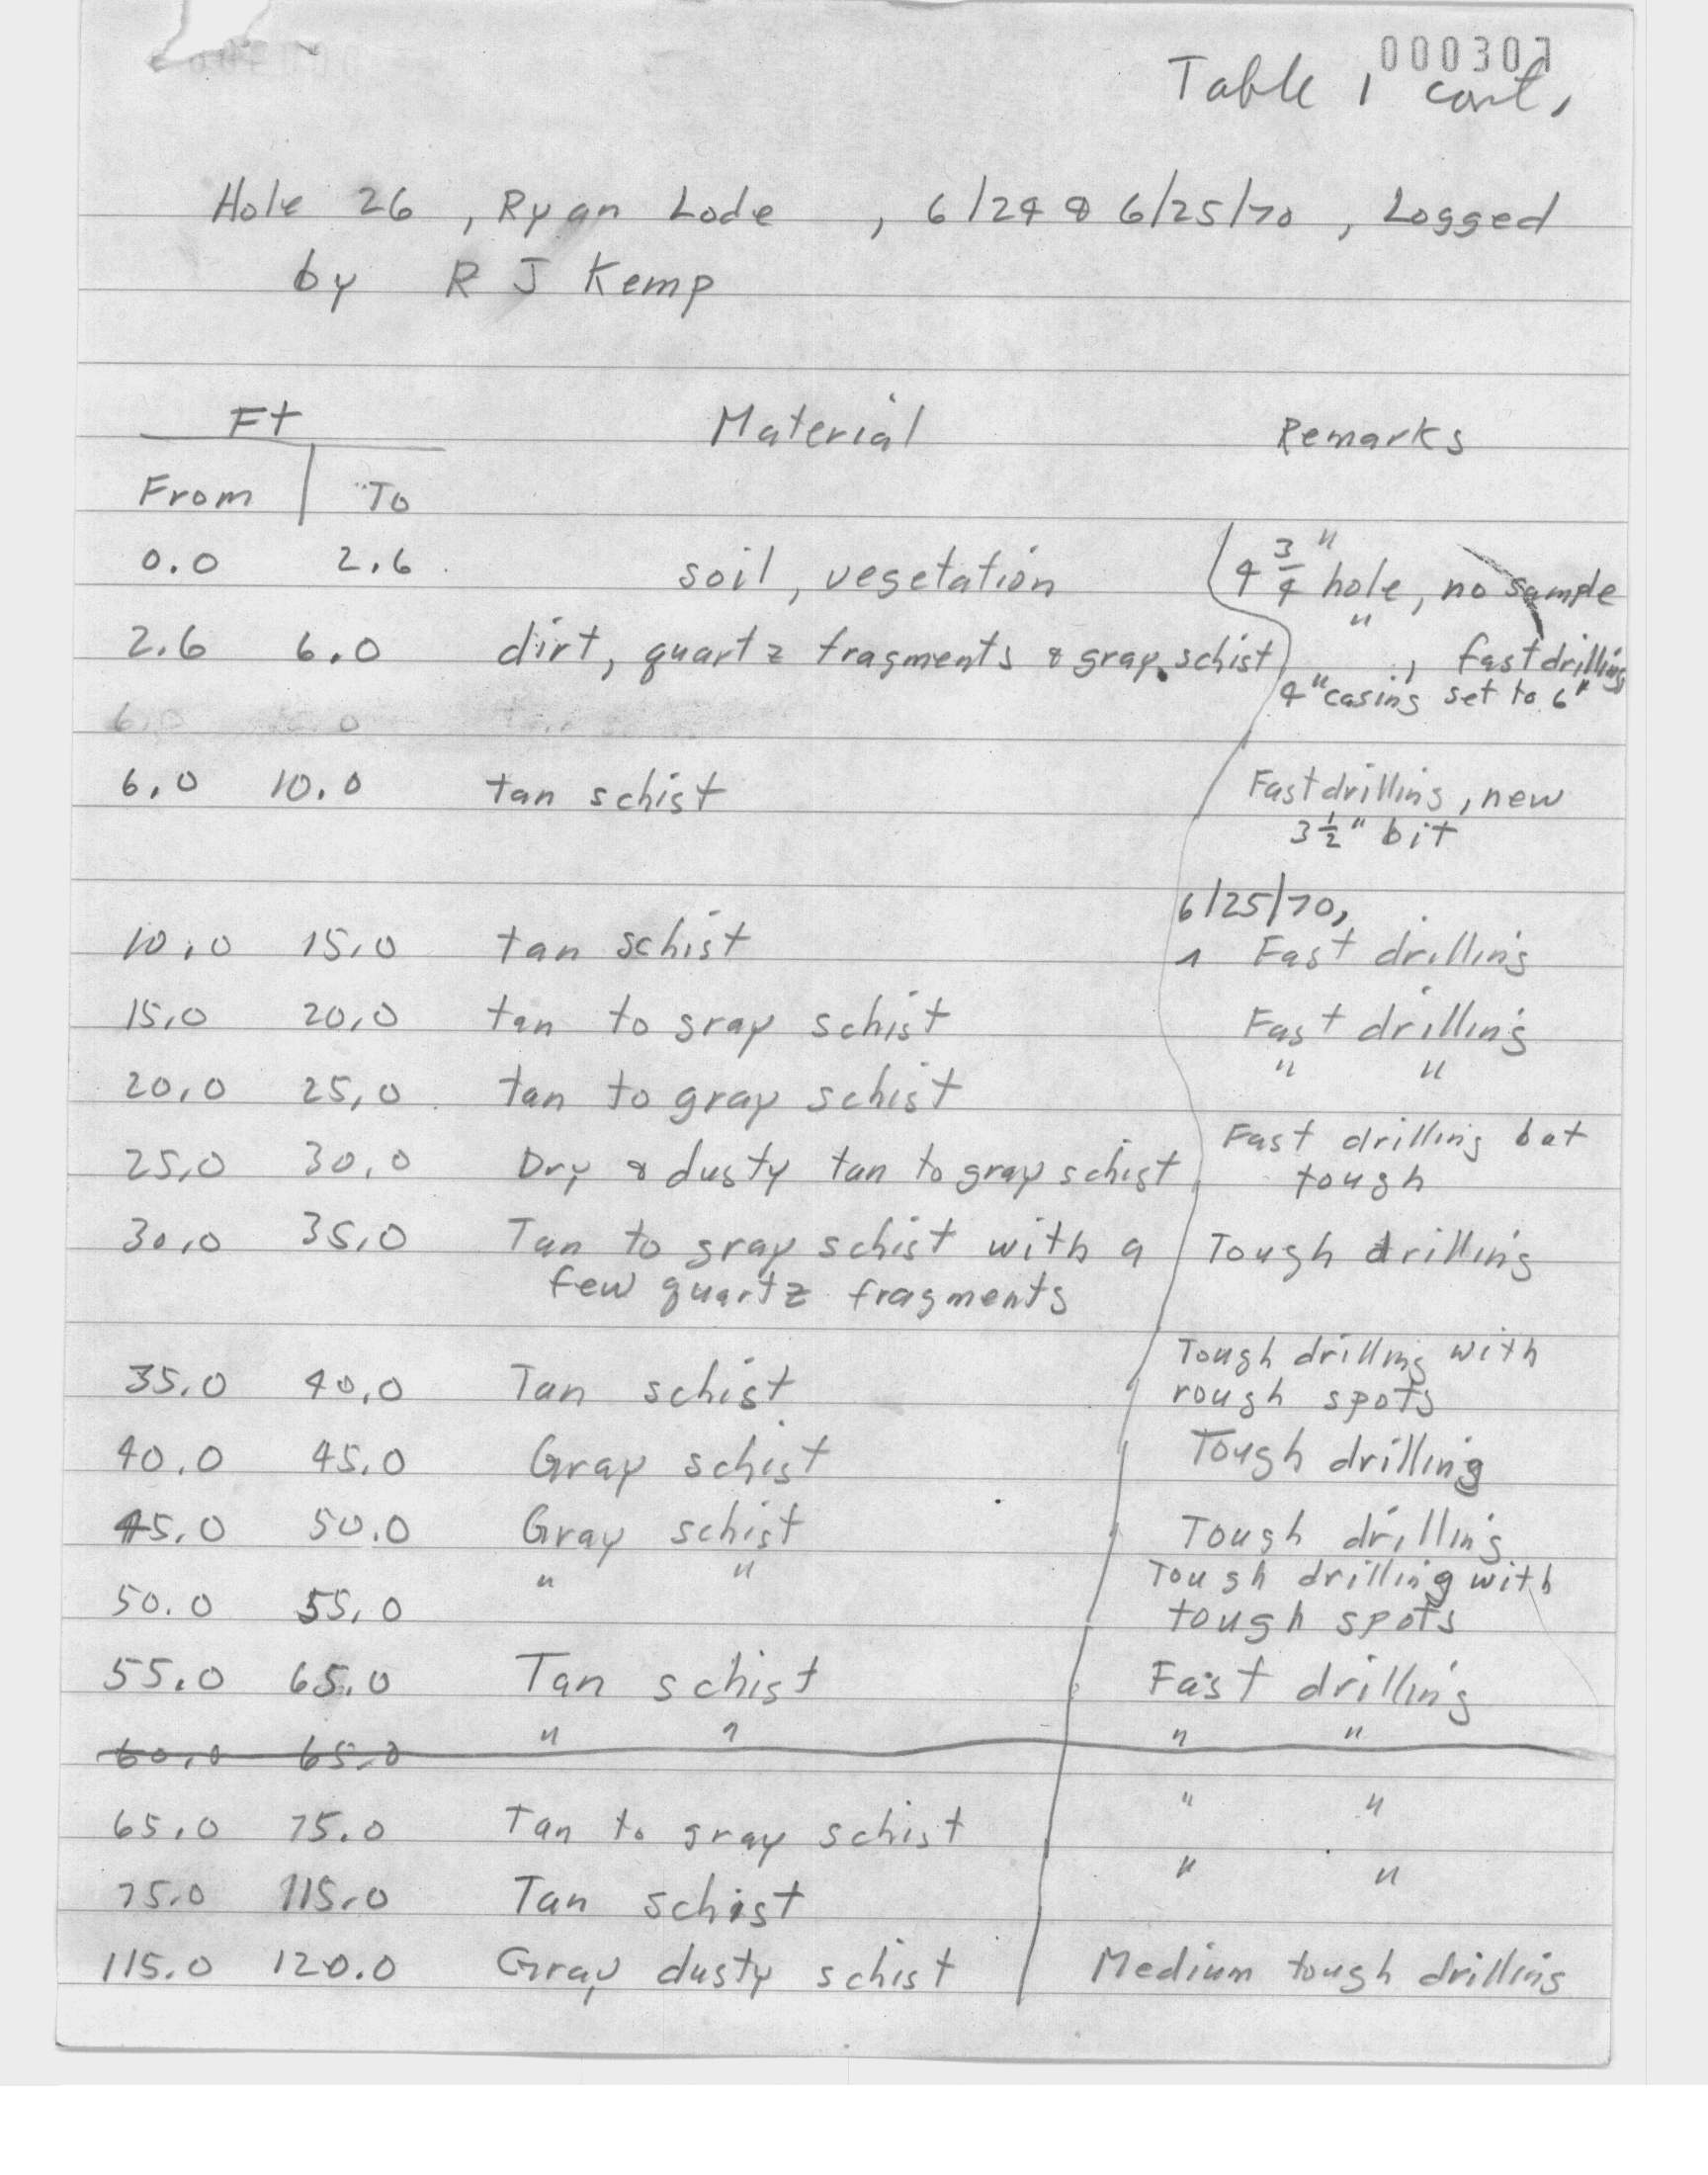 000307
Table 1 cont,
Hole 26 , Ryan Lode , 6/24 & 6/25/70 , Logged
by R J Kemp
Ft Material Remarks
From To
0.0 2.6 soil, vegetation 4 3/4" hole, no sample
2.6 6.0 dirt, quartz fragments & gray schist " , fast drilling
4" casing set to 6"
6.0 10.0 tan schist Fast drilling, new
3 1/2" bit
6/25/70,
10.0 15.0 tan schist Fast drilling
15.0 20.0 tan to gray schist Fast drilling
20.0 25.0 tan to gray schist " "
25.0 30.0 Dry & dusty tan to gray schist Fast drilling but
tough
30.0 35.0 Tan to gray schist with a Tough drilling
few quartz fragments
Tough drilling with
35.0 40.0 Tan schist rough spots
40.0 45.0 Gray schist Tough drilling
45.0 50.0 Gray schist Tough drilling
50.0 55.0 " " Tough drilling with
tough spots
55.0 65.0 Tan schist Fast drilling
60.0 65.0 " " " "
65.0 75.0 Tan to gray schist " "
75.0 115.0 Tan schist " "
115.0 120.0 Gray dusty schist Medium tough drilling